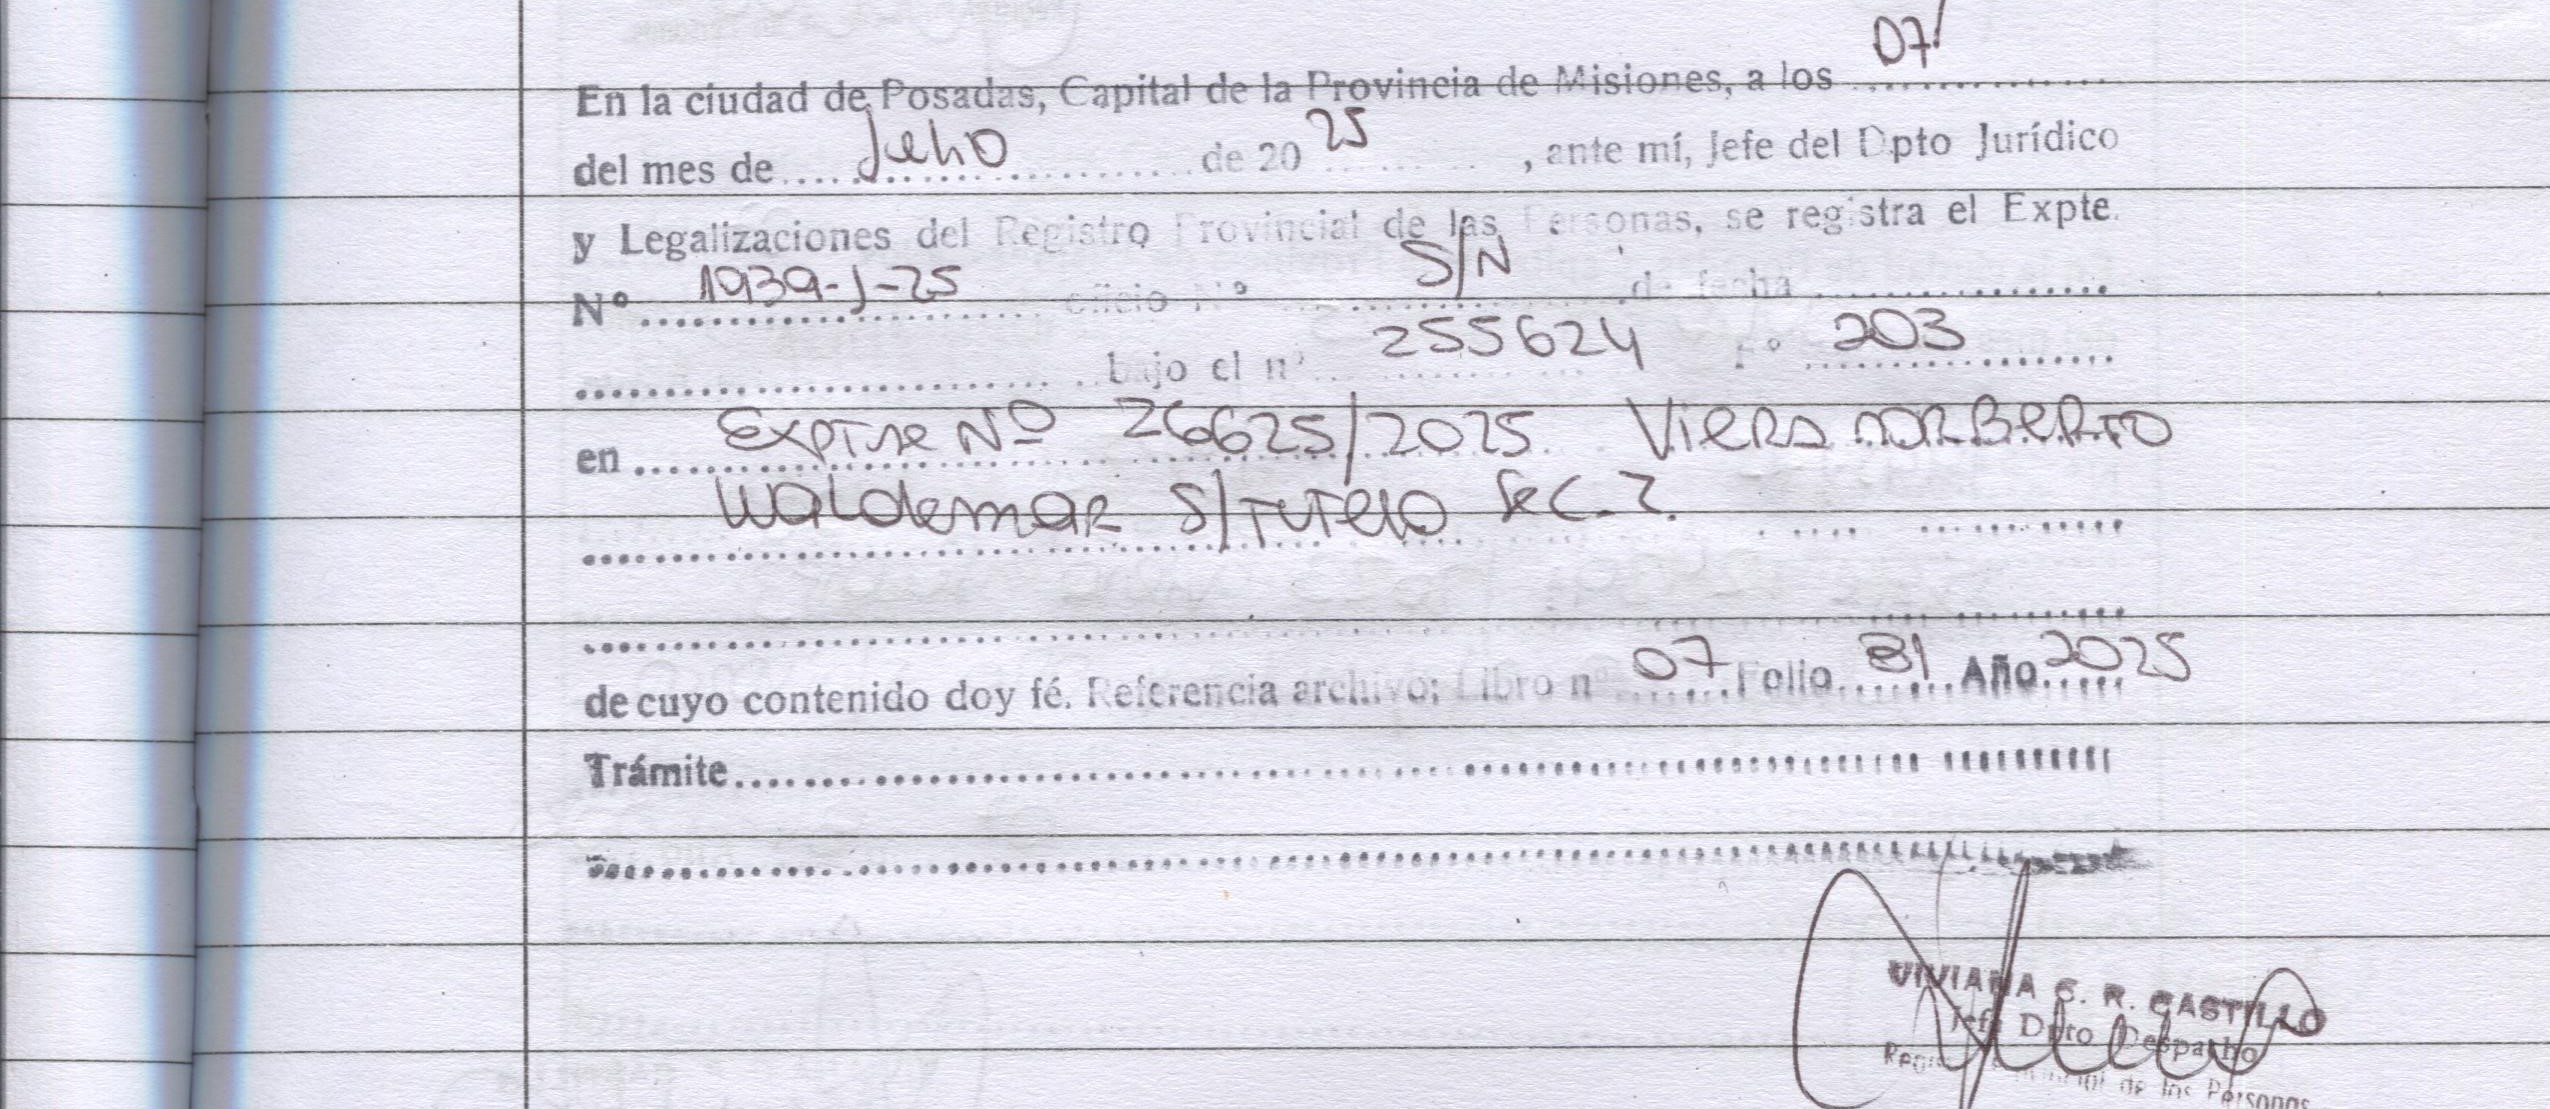 En la ciudad de Posadas, Capital de la Provincia de Misiones, a los 07
del mes de Julio de 2025, ante mí, Jefe del Dpto Jurídico
y Legalizaciones del Registro Provincial de las Personas, se registra el Expte.
Nº 1939-J-25 oficio Nº S/N de fecha
bajo el nº 255624 Fº 203
en Expte Nº 26625/2025 Viera Norberto
Waldemar S/Tutela Sec. 2.
de cuyo contenido doy fé. Referencia archivo: Libro nº 07 Folio 81 Año 2025
Trámite
VIVIANA C. R. CASTILLO
Jefe Dpto Despacho
Registro Provincial de las Personas